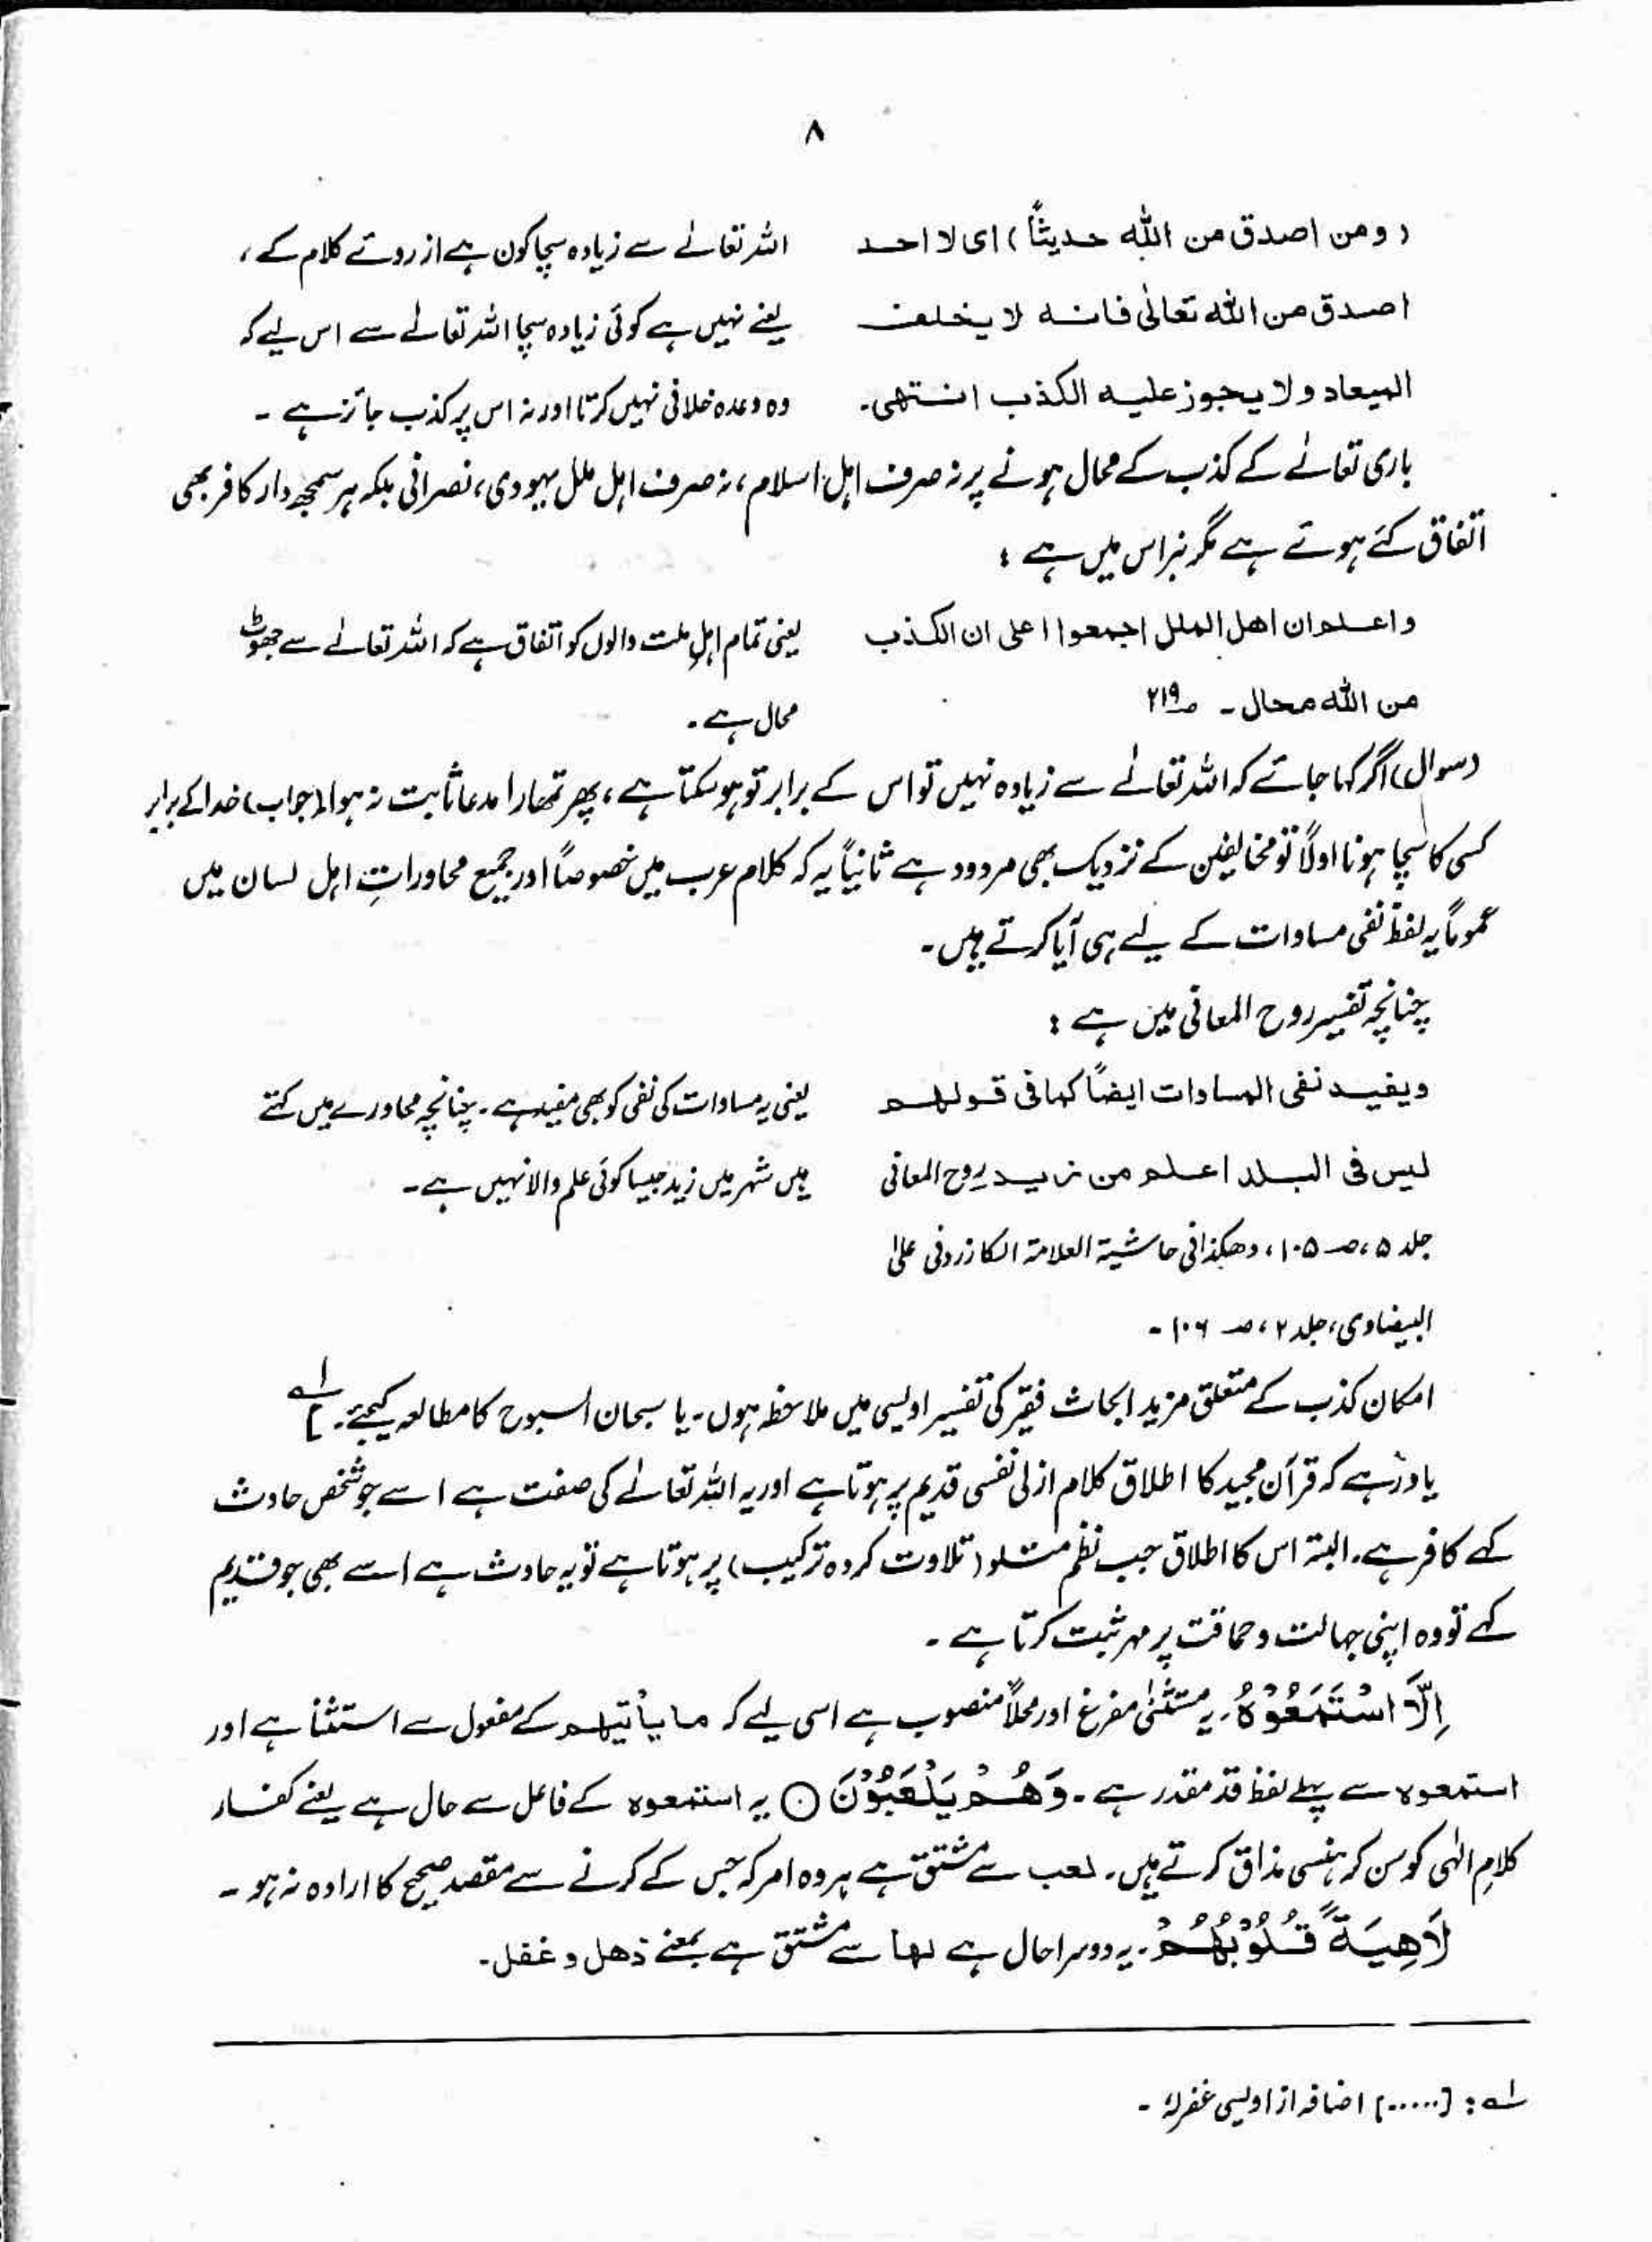 ۸
(ومن اصدق من اللہ حدیثاً) ای لا احد
اصدق من اللہ تعالٰی فانہ لا یخلف
المیعاد ولا یجوز علیہ الکذب انتہی۔
اللہ تعالےٰ سے زیادہ سچا کون ہے از روئے کلام کے،
یعنے نہیں ہے کوئی زیادہ سچا اللہ تعالےٰ سے اس لیے کہ
وہ وعدہ خلافی نہیں کرتا اور نہ اس پر کذب جائز ہے ۔
باری تعالےٰ کے کذب کے محال ہونے پر نہ صرف اہل اسلام، نہ صرف اہل ملل یہودی، نصرانی بلکہ ہر سمجھ دار کافر بھی
اتفاق کئے ہوئے ہے مگر نبراس میں ہے :
واعلم ان اھل الملل اجمعوا علی ان الکذب
من اللہ محال ۔ صـ۲۱۹
یعنی تمام اہلِ ملت والوں کو اتفاق ہے کہ اللہ تعالےٰ سے جھوٹ
محال ہے ۔
(سوال) اگر کہا جائے کہ اللہ تعالےٰ سے زیادہ نہیں تو اس کے برابر تو ہو سکتا ہے، پھر تمھارا مدعا ثابت نہ ہوا۔ (جواب) خدا کے برابر
کسی کا سچا ہونا اولاً تو مخالفین کے نزدیک بھی مردود ہے ثانیاً یہ کہ کلام عرب میں خصوصاً اور جمیع محاوراتِ اہل لسان میں
عموماً یہ لفظ نفی مساوات کے لیے ہی آیا کرتے ہیں ۔
چنانچہ تفسیر روح المعانی میں ہے :
ویفید نفی المساوات ایضاً کما فی قولھم
لیس فی البلد اعلم من زید روح المعانی
جلد ۵، صـ ۱۰۵، وھکذا فی حاشیۃ العلامۃ الکازرونی علیٰ
البیضاوی، جلد ۲، صـ ۱۰۶ ۔
یعنی یہ مساوات کی نفی کو بھی مفید ہے ۔ چنانچہ محاورے میں کہتے
ہیں شہر میں زید جیسا کوئی علم والا نہیں ہے ۔
امکان کذب کے متعلق مزید ابحاث فقیر کی تفسیر اویسی میں ملاحظہ ہوں ۔ یا سبحان السبوح کا مطالعہ کیجئے ۔] لہ
یاد رہے کہ قرآن مجید کا اطلاق کلام ازلی نفسی قدیم پر ہوتا ہے اور یہ اللہ تعالےٰ کی صفت ہے اسے جو شخص حادث
کہے کافر ہے ۔ البتہ اس کا اطلاق جب نظم متلو (تلاوت کردہ ترکیب) پر ہوتا ہے تو یہ حادث ہے اسے بھی جو قدیم
کہے تو وہ اپنی جہالت و حماقت پر مہر ثبت کرتا ہے ۔
اِلَّا اسْتَمَعُوْہُ ۔ یہ مستثنیٰ مفرغ اور محلاً منصوب ہے اسی لیے کہ ما یأتیھم کے مفعول سے استثنا ہے اور
استمعوہ سے پہلے لفظ قد مقدر ہے ۔ وَھُمْ یَلْعَبُوْنَ ○ یہ استمعوہ کے فاعل سے حال ہے یعنے کفار
کلامِ الٰہی کو سن کر ہنسی مذاق کرتے ہیں ۔ لعب سے مشتق ہے ہر وہ امر کہ جس کے کرنے سے مقصد صحیح کا ارادہ نہ ہو ۔
لَاھِیَۃً قُلُوْبُھُمْ ۔ یہ دوسرا حال ہے لھا سے مشتق ہے بمعنے ذھل و غفل ۔
لہ : [.....] اضافہ از اویسی غفرلہٗ ۔